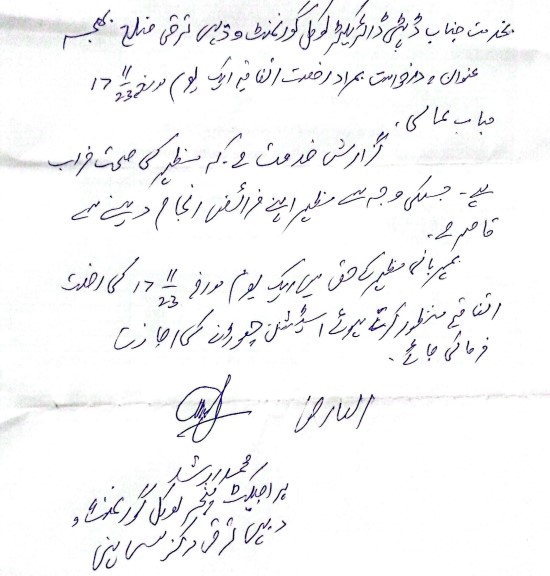 بخدمت جناب ڈپٹی ڈائریکٹر لوکل گورنمنٹ و دیہی ترقی ضلع بھمبر
عنوان: درخواست بمراد رخصت اتفاقیہ ایک یوم مورخہ 17 11/23
جناب عالی،
گزارش خدمت ہے کہ مظہر کی صحت خراب
ہے۔ جسکی وجہ سے مظہر اپنے فرائض انجام دینے سے
قاصر ہے۔
بمہربانی مظہر کے حق میں ایک یوم مورخہ 17 11/23 کی رخصت
اتفاقیہ منظور کرتے ہوئے اسٹیشن چھوڑنے کی اجازت
فرمائی جائے۔
العارض
محمد راشد
پراجیکٹ منیجر لوکل گورنمنٹ و
دیہی ترقی مرکز